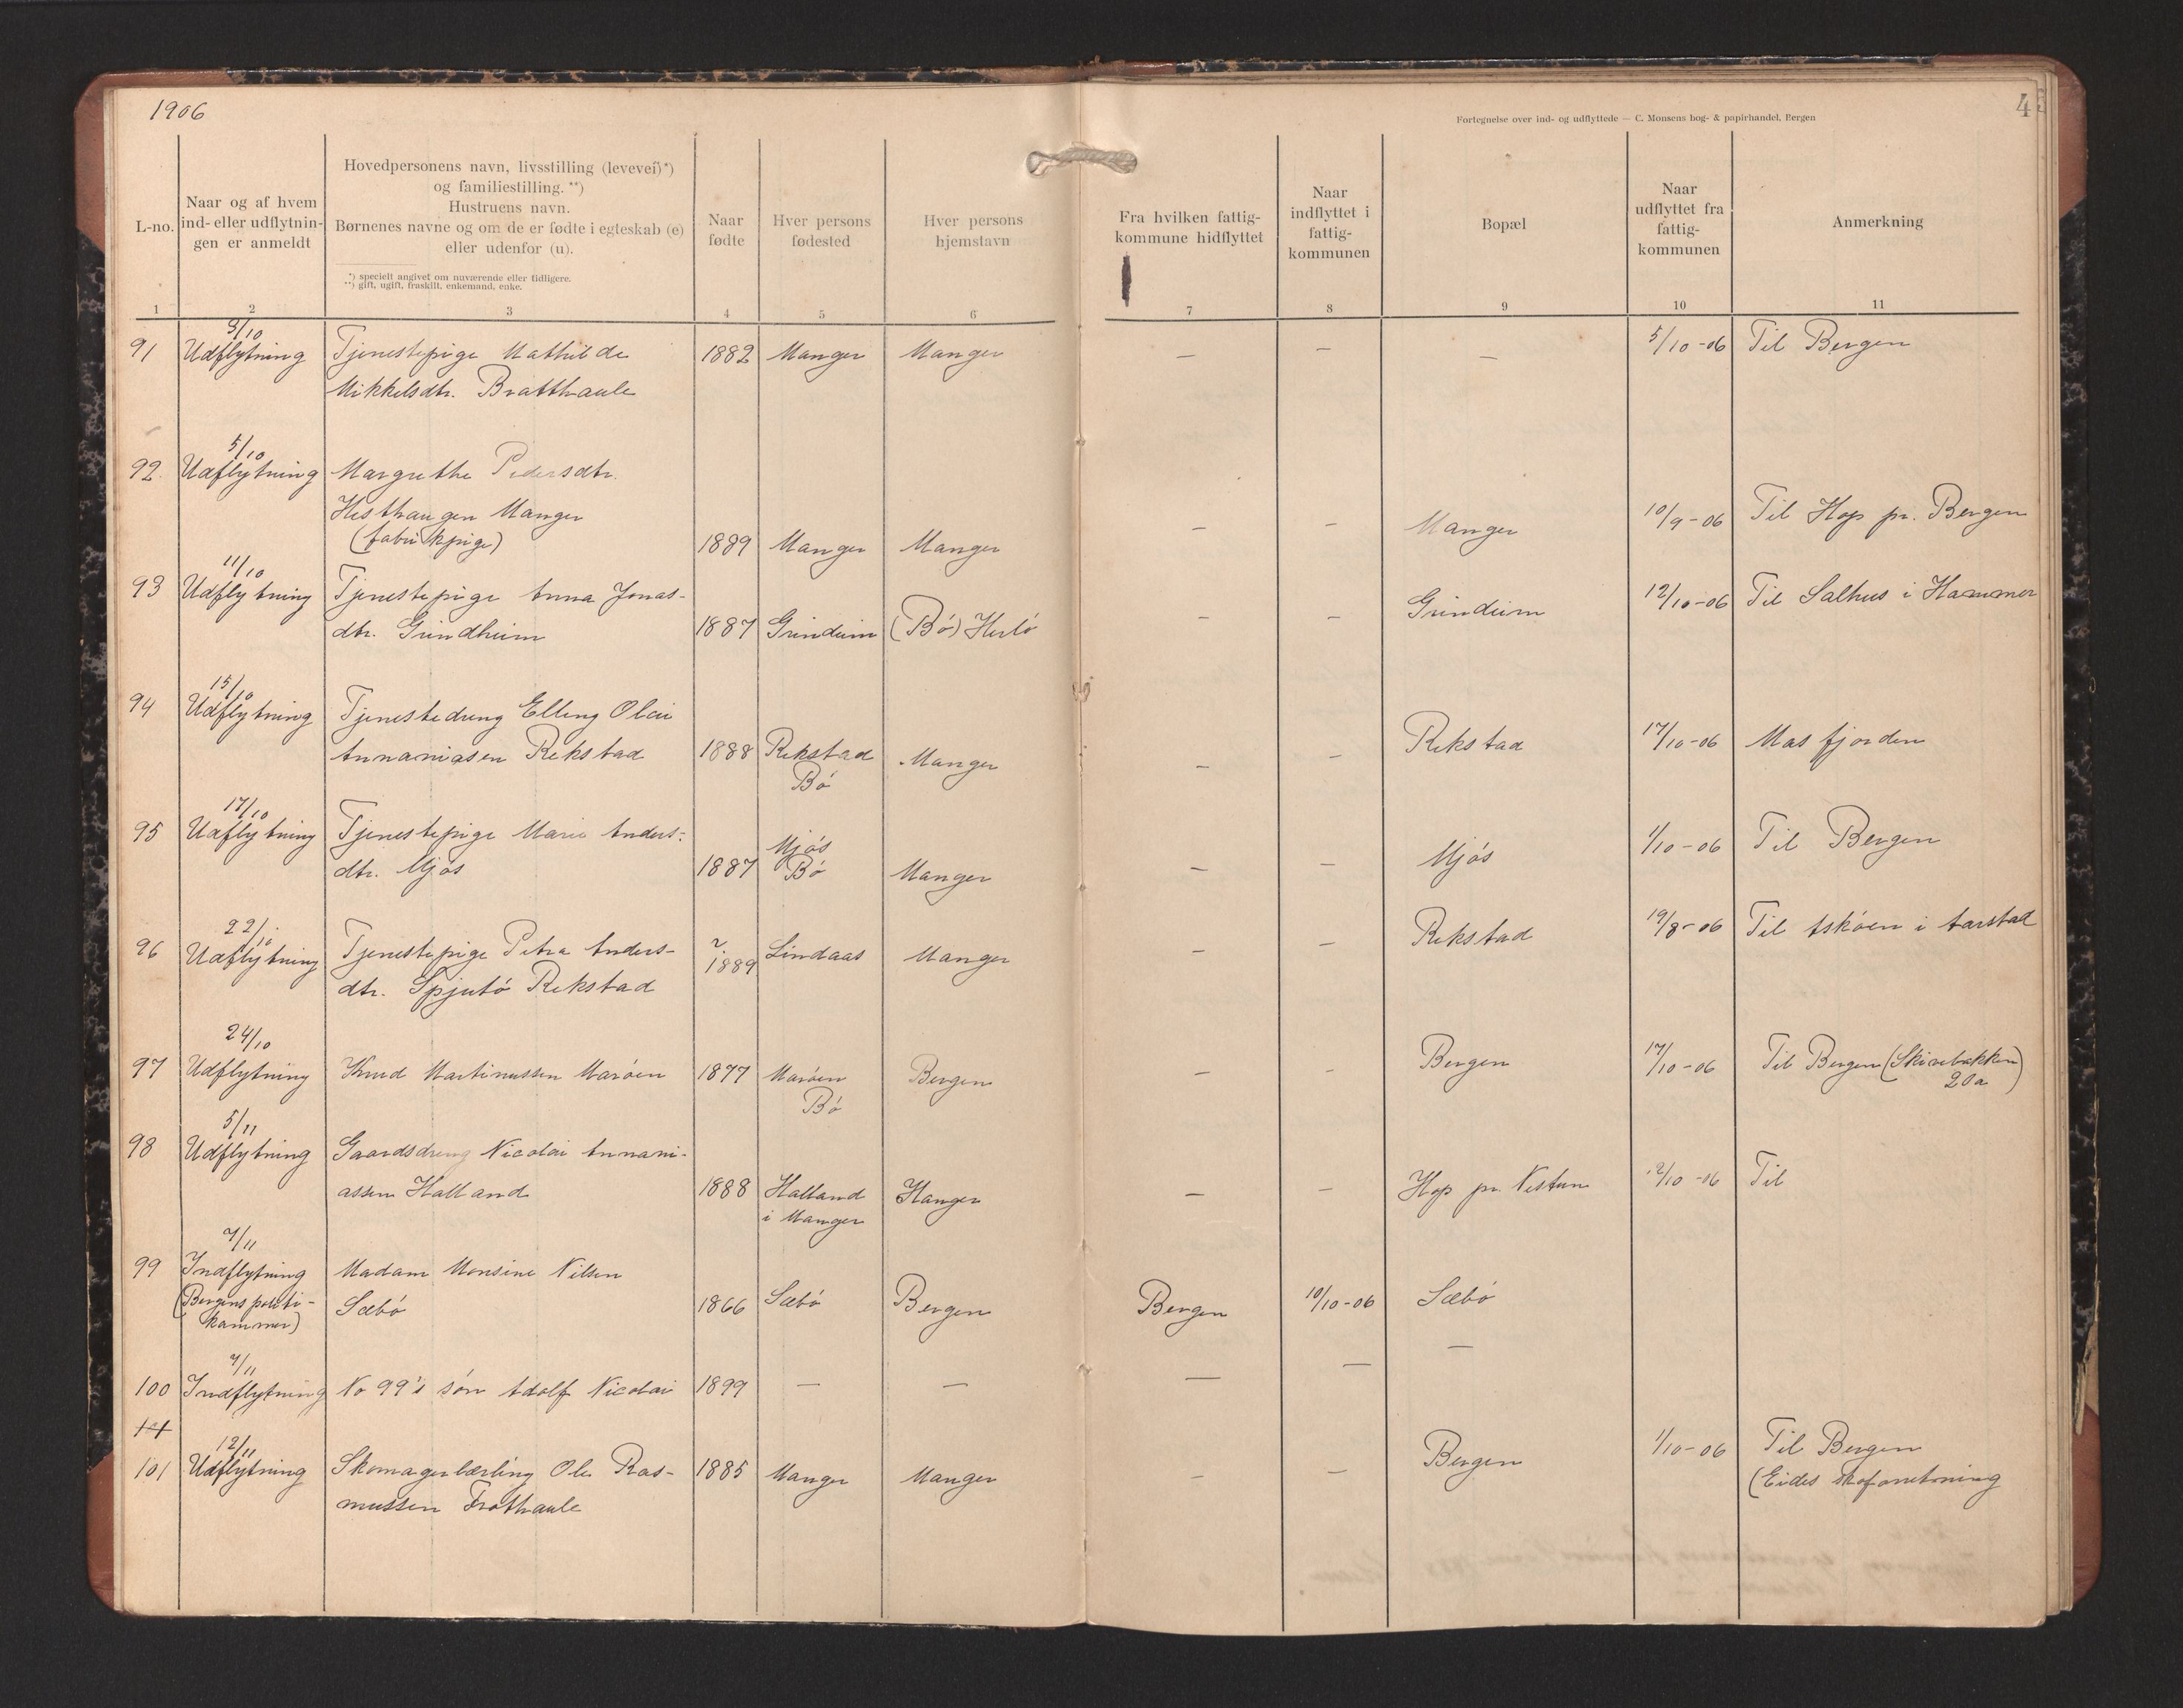 1906
4
Fortegnelse over ind- og udflyttede — C. Monsens bog- & papirhandel, Bergen
L-no.
Naar og af hvem
ind- eller udflytnin-
gen er anmeldt
Hovedpersonens navn, livsstilling (levevei)*)
og familiestilling. **)
Hustruens navn.
Børnenes navne og om de er fødte i egteskab (e)
eller udenfor (u).
*) specielt angivet om nuværende eller tidligere.
**) gift, ugift, fraskilt, enkemand, enke.
Naar
fødte
Hver persons
fødested
Hver persons
hjemstavn
Fra hvilken fattig-
kommune hidflyttet
Naar
indflyttet i
fattig-
kommunen
Bopæl
Naar
udflyttet fra
fattig-
kommunen
Anmerkning
1 2 3 4 5 6 7 8 9 10 11
3/10
91 Udflytning Tjenestepige Mathilde 1882 Manger Manger — — — 5/10-06 Til Bergen
Mikkelsdtr. Bratthaule
5/10
92. Udflytning Margrethe Pedersdtr.
Hesthaugen Manger — — Manger 10/9-06 Til Hop pr. Bergen
(fabrikpige) 1889 Manger Manger
11/10
93 Udflytning Tjenestepige Anna Jonas- Grindeim 12/10-06 Til Salhus i Hammer
dtr. Grindheim 1887 Grindeim (Bö) Herlö — —
15/10
94 Udflytning Tjenestedreng Elling Olai
Annaniasen Rekstad 1888 Rekstad Manger — — Rekstad 17/10-06 Masfjorden
Bö
17/10
95 Udflytning Tjenestepige Marie Anders- Mjös 1/10-06 Til Bergen
dtr. Mjøs 1887 Bö Manger — — Mjös
22/10
96 Udflytning Tjenestepige Petra Anders- 1889 Lindaas Manger — — Rekstad 19/8-06 Til Askøen i Aarstad
dtr. Spjutö Rekstad
24/10
97 Udflytning Knud Martinussen Marøen 1877 Marøen Bergen — — Bergen 17/10-06 Til Bergen (Skivebakken
Bö 20a)
5/11
98 Udflytning Gaardsdreng Nicolai Annani-
assen Halland 1888 Halland Manger — — Hop pr. Nestun 12/10-06 Til
i Manger
7/11
99 Indflytning Madam Monsine Nilsen
(Bergens politi- Sæbö 1866 Sæbö Bergen Bergen 10/10-06 Sæbö
kammer)
7/11
100 Indflytning No 99's sön Adolf Nicolai 1899 — — — — —
12/11
101 Udflytning Skomagerlærling Ole Ras- 1885 Manger Manger — — Bergen 1/10-06 Til Bergen
mussen Frothaule (Eides skoforretning